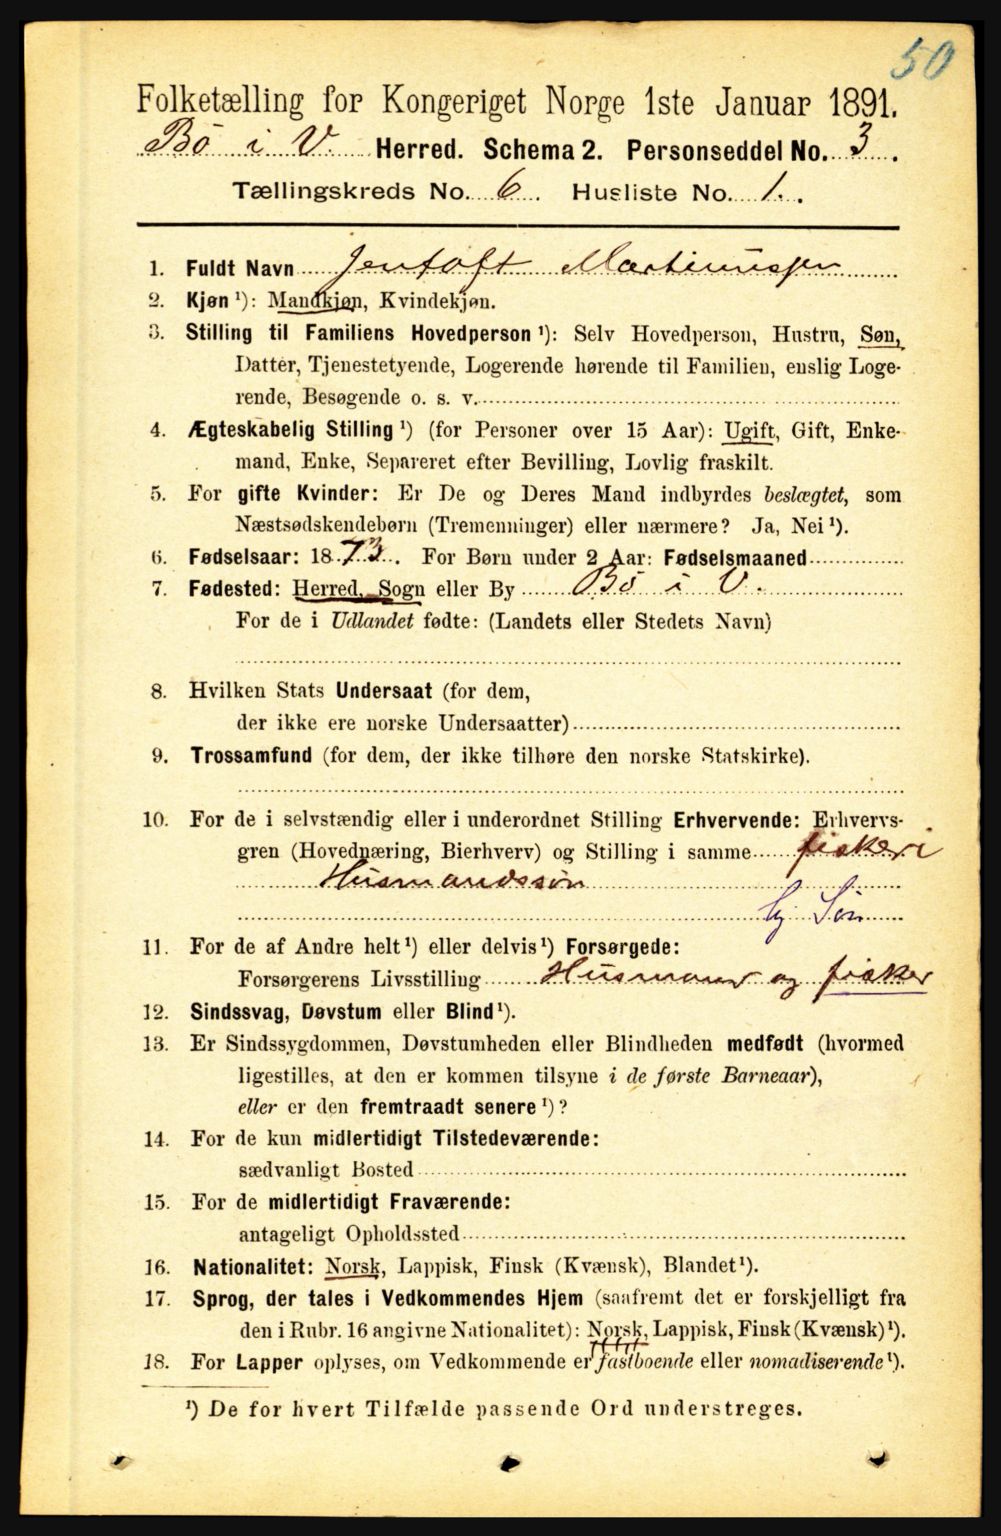 50
Folketælling for Kongeriget Norge 1ste Januar 1891.
Bö i V. Herred. Schema 2. Personseddel No. 3.
Tællingskreds No. 6. Husliste No. 1.
1. Fuldt Navn Jentoft Martinussen
2. Kjøn ¹): Mandkjøn, Kvindekjøn.
3. Stilling til Familiens Hovedperson ¹): Selv Hovedperson, Hustru, Søn,
Datter, Tjenestetyende, Logerende hørende til Familien, enslig Loge-
rende, Besøgende o. s. v.
4. Ægteskabelig Stilling ¹) (for Personer over 15 Aar): Ugift, Gift, Enke-
mand, Enke, Separeret efter Bevilling, Lovlig fraskilt.
5. For gifte Kvinder: Er De og Deres Mand indbyrdes beslægtet, som
Næstsødskendebørn (Tremenninger) eller nærmere? Ja, Nei ¹).
6. Fødselsaar: 1873. For Børn under 2 Aar: Fødselsmaaned
7. Fødested: Herred, Sogn eller By Bö i V.
For de i Udlandet fødte: (Landets eller Stedets Navn)
8. Hvilken Stats Undersaat (for dem,
der ikke ere norske Undersaatter)
9. Trossamfund (for dem, der ikke tilhøre den norske Statskirke).
10. For de i selvstændig eller i underordnet Stilling Erhvervende: Erhvervs-
gren (Hovednæring, Bierhverv) og Stilling i samme fiskeri
Husmandssön
Søn
11. For de af Andre helt ¹) eller delvis ¹) Forsørgede:
Forsørgerens Livsstilling Husmand og fisker
12. Sindssvag, Døvstum eller Blind ¹).
13. Er Sindssygdommen, Døvstumheden eller Blindheden medfødt (hvormed
ligestilles, at den er kommen tilsyne i de første Barneaar),
eller er den fremtraadt senere ¹)?
14. For de kun midlertidigt Tilstedeværende:
sædvanligt Bosted
15. For de midlertidigt Fraværende:
antageligt Opholdssted
16. Nationalitet: Norsk, Lappisk, Finsk (Kvænsk), Blandet ¹).
17. Sprog, der tales i Vedkommendes Hjem (saafremt det er forskjelligt fra
den i Rubr. 16 angivne Nationalitet): Norsk, Lappisk, Finsk (Kvænsk) ¹).
18. For Lapper oplyses, om Vedkommende er fastboende eller nomadiserende ¹).
¹) De for hvert Tilfælde passende Ord understreges.